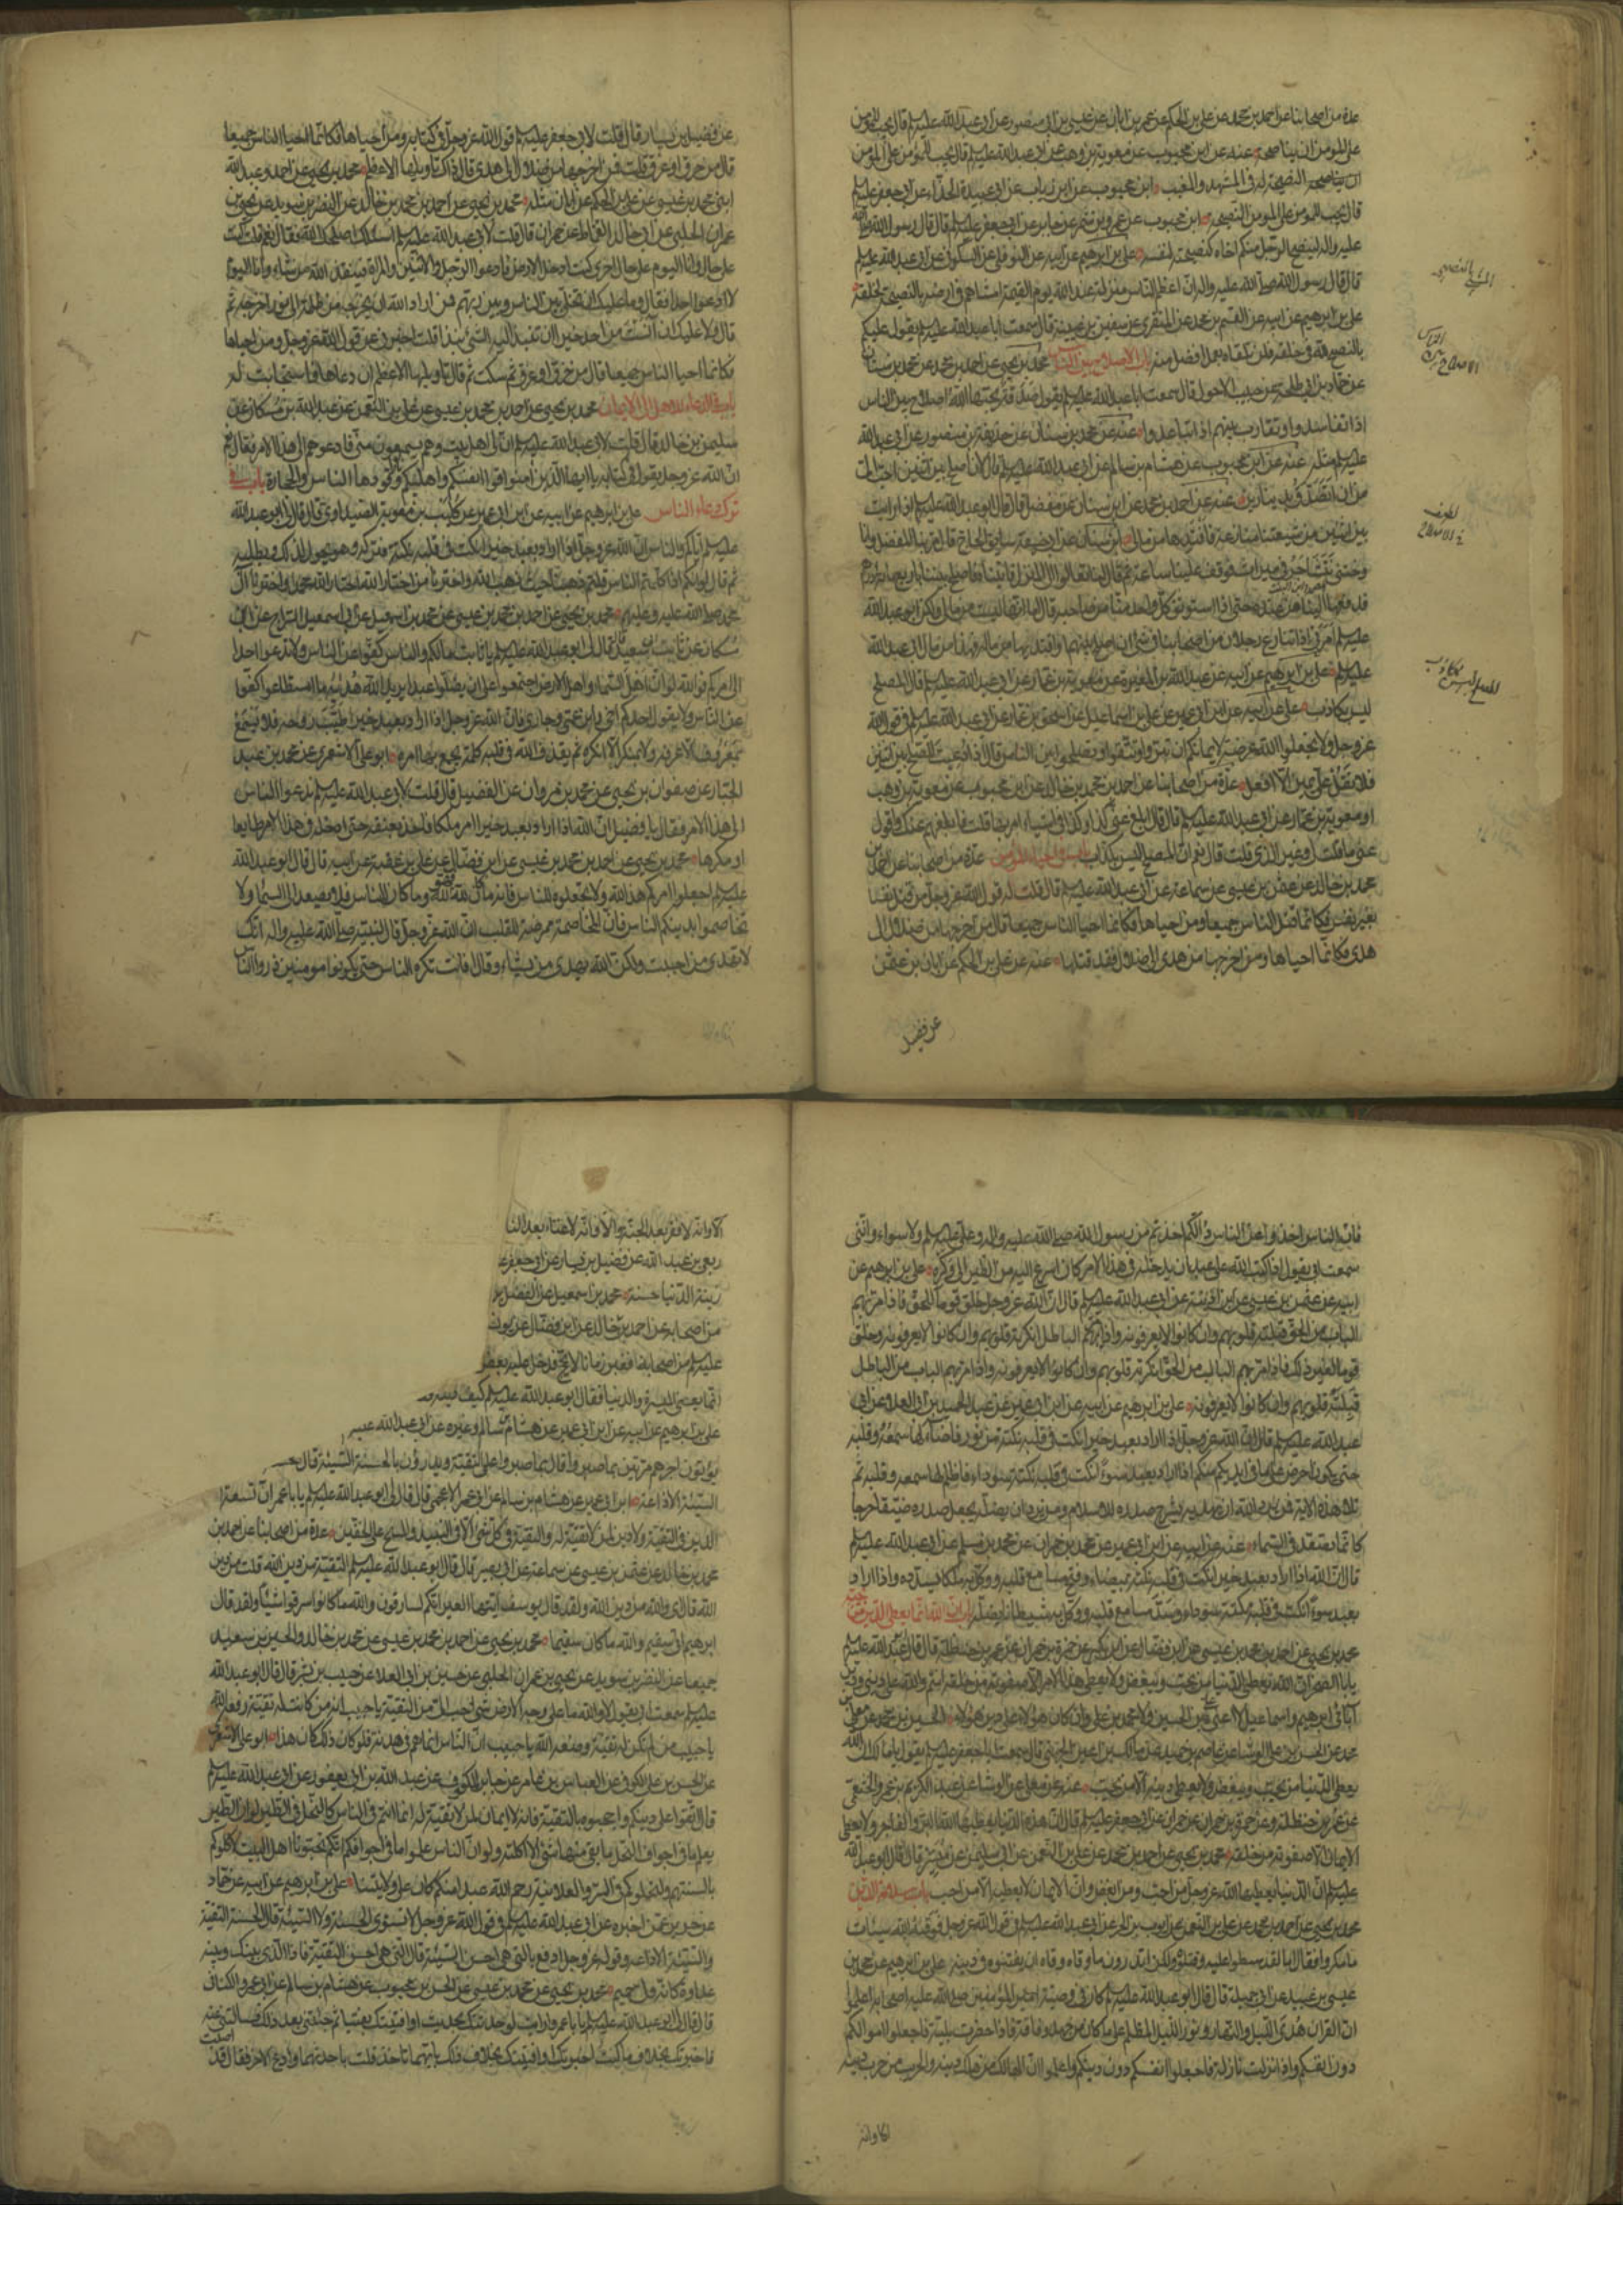 عدة من اصحابنا عن احمد بن محمد عن علي بن الحكم عن عمر بن ابان عن عيسى بن ابي منصور عن ابي عبد الله عليه السلم قال يجب للمؤمن
على المؤمن ان يناصحه عنه عن ابن محبوب عن معوية بن وهب عن ابي عبد الله عليه السلم قال يجب للمؤمن على المؤمن
النصيحة له في المشهد والمغيب ابن محبوب عن ابن رياب عن ابي عبيدة الحذاء عن ابي جعفر عليه السلم
قال يجب للمؤمن على المؤمن النصيحة ابن محبوب عن عمرو بن شمر عن جابر عن ابي جعفر عليه السلم قال قال رسول الله صلى الله
عليه واله لينصح الرجل منكم اخاه كنصيحته لنفسه علي بن ابرهيم عن ابيه عن النوفلي عن السكوني عن ابي عبد الله عليه السلم
قال قال رسول الله صلى الله عليه واله ان اعظم الناس منزلة عند الله يوم القيمة امشاهم في ارضه بالنصيحة لخلقه
علي بن ابرهيم عن ابيه عن القسم بن محمد عن المنقري عن سفين بن عيينة قال سمعت ابا عبد الله عليه السلم يقول عليكم
بالنصح لله في خلقه فلن تلقاه بعمل افضل منه باب الاصلاح بين الناس محمد بن يحيى عن احمد بن محمد عن محمد بن سنان
عن حماد بن ابي طلحة عن حبيب الاحول قال سمعت ابا عبد الله عليه السلم يقول صدقة يحبها الله اصلاح بين الناس
اذا تفاسدوا وتقارب بينهم اذا تباعدوا عنه عن محمد بن سنان عن حذيفة بن منصور عن ابي عبد الله
عليه السلم مثله عنه عن ابن محبوب عن هشام بن سالم عن ابي عبد الله عليه السلم قال لان اصلح بين اثنين احب الي
من ان اتصدق بدينارين عنه عن احمد بن محمد عن ابن سنان عن مفضل قال قال ابو عبد الله عليه السلم اذا رايت
بين اثنين من شيعتنا منازعة فافتدها من مالي ابن سنان عن ابي حنيفة سابق الحاج قال مر بنا المفضل وانا
وختني نتشاجر في ميراث فوقف علينا ساعة ثم قال لنا تعالوا الى المنزل فاتيناه فاصلح بيننا باربعمائة درهم
فدفعها الينا من عنده حتى اذا استوثق كل واحد منا من صاحبه قال اما انها ليست من مالي ولكن ابو عبد الله
عليه السلم امرني اذا تنازع رجلان من اصحابنا في شيء ان اصلح بينهما وافتديها من ماله فهذا من مال ابي عبد الله
عليه السلم علي بن ابرهيم عن ابيه عن عبد الله بن المغيرة عن معوية بن عمار عن ابي عبد الله عليه السلم قال المصلح
ليس بكاذب علي عن ابيه عن ابن ابي عمير عن علي بن اسماعيل عن اسحق بن عمار عن ابي عبد الله عليه السلم في قول الله
عز وجل ولا تجعلوا الله عرضة لايمانكم ان تبروا وتتقوا وتصلحوا بين الناس قال اذا دعيت لتصلح بين اثنين
فلا تقل علي يمين الا افعل عدة من اصحابنا عن احمد بن محمد بن خالد عن ابن محبوب عن معوية بن وهب
او معوية بن عمار عن ابي عبد الله عليه السلم قال قال ابلغ عني كذا وكذا في اشياء امر بها قلت فابلغهم عنك واقول
عني ما قلت لي وغير الذي قلت قال نعم ان المصلح ليس بكذاب باب في احياء المؤمن عدة من اصحابنا عن احمد بن
محمد بن خالد عن عثمن بن عيسى عن سماعة عن ابي عبد الله عليه السلم قال قلت له قول الله عز وجل من قتل نفسا
بغير نفس فكانما قتل الناس جميعا ومن احياها فكانما احيا الناس جميعا قال من اخرجها من ضلال الى
هدى فكانما احياها ومن اخرجها من هدى الى ضلال فقد قتلها عنه عن علي بن الحكم عن ابان بن عثمن
عن فضيل
عن فضيل بن يسار قال قلت لابي جعفر عليه السلم قول الله عز وجل في كتابه ومن احياها فكانما احيا الناس جميعا
قال من حرق او غرق قلت فمن اخرجها من ضلال الى هدى قال ذاك تاويلها الاعظم محمد بن يحيى عن احمد وعبد الله
ابني محمد بن عيسى عن علي بن الحكم عن ابان مثله محمد بن يحيى عن احمد بن محمد بن خالد عن النضر بن سويد عن يحيى بن
عمران الحلبي عن ابي خالد القماط عن حمران قال قلت لابي عبد الله عليه السلم اسئلك اصلحك الله فقال نعم قلت كنت
على حال وانا اليوم على حال اخرى كنت ادخل الارض فادعوا الرجل والاثنين والمراة فينقذ الله من شاء وانا اليوم
لا ادعوا احدا فقال وما عليك ان تخلي بين الناس وبين ربهم فمن اراد الله ان يخرجه من ظلمة الى نور اخرجه ثم
قال ولا عليك ان آنست من احد خيرا ان تنبذ اليه الشيء نبذا قلت اخبرني عن قول الله عز وجل ومن احياها
فكانما احيا الناس جميعا قال من حرق او غرق ثم سكت ثم قال تاويلها الاعظم ان دعاها فاستجابت له
باب في الدعاء للاهل الى الايمان محمد بن يحيى عن احمد بن محمد بن عيسى عن علي بن النعمن عن عبد الله بن مسكان عن
سليمن بن خالد قال قلت لابي عبد الله عليه السلم ان لي اهل بيت وهم يسمعون مني افادعوهم الى هذا الامر فقال نعم
ان الله عز وجل يقول في كتابه يا ايها الذين امنوا قوا انفسكم واهليكم نارا وقودها الناس والحجارة باب في
ترك دعاء الناس علي بن ابرهيم عن ابيه عن ابن ابي عمير عن كليب بن معوية الصيداوي قال قال لي ابو عبد الله
عليه السلم اياكم والناس ان الله عز وجل اذا اراد بعبد خيرا نكت في قلبه نكتة فتركه وهو يجول لذلك ويطلبه
ثم قال لو انكم اذا كلمتم الناس قلتم ذهبنا حيث ذهب الله واخترنا من اختار الله اختار الله محمدا واخترنا آل
محمد صلى الله عليه وعليهم محمد بن يحيى عن احمد بن محمد بن عيسى عن محمد بن اسمعيل عن ابي اسمعيل السراج عن ابن
مسكان عن ثابت ابي سعيد قال قال لي ابو عبد الله عليه السلم يا ثابت ما لكم والناس كفوا عن الناس ولا تدعوا احدا
الى امركم فوالله لو ان اهل السماء واهل الارض اجتمعوا على ان يضلوا عبدا يريد الله هديه ما استطاعوا كفوا
عن الناس ولا يقول احدكم اخي وابن عمي وجاري فان الله عز وجل اذا اراد بعبد خيرا طيب روحه فلا يسمع
بمعروف الا عرفه ولا بمنكر الا انكره ثم يقذف الله في قلبه كلمة يجمع بها امره ابو علي الاشعري عن محمد بن عبد
الجبار عن صفوان بن يحيى عن محمد بن مروان عن الفضيل قال قلت لابي عبد الله عليه السلم ندعوا الناس
الى هذا الامر فقال يا فضيل ان الله اذا اراد بعبد خيرا امر ملكا فاخذ بعنقه حتى ادخله في هذا الامر طايعا
او مكرها محمد بن يحيى عن احمد بن محمد بن عيسى عن ابن فضال عن علي بن عقبة عن ابيه قال قال ابو عبد الله
عليه السلم اجعلوا امركم هذا لله ولا تجعلوه للناس فانه ما كان لله فهو لله وما كان للناس فلا يصعد الى السماء ولا
تخاصموا بدينكم الناس فان المخاصمة ممرضة للقلب ان الله عز وجل قال لنبيه صلى الله عليه واله انك
لا تهدي من احببت ولكن الله يهدي من يشاء وقال افانت تكره الناس حتى يكونوا مؤمنين ذروا الناس
فان الناس اخذوا عن الناس وانكم اخذتم من رسول الله صلى الله عليه واله وعلي عليه السلم ولا سواء وانني
سمعت ابي يقول اذا كتب الله على عبد ان يدخله في هذا الامر كان اسرع اليه من الطير الى وكره علي بن ابرهيم عن
ابيه عن عثمن بن عيسى عن ابن اذينة عن ابي عبد الله عليه السلم قال ان الله عز وجل خلق قوما للحق فاذا مر بهم
الباب من الحق قبلته قلوبهم وان كانوا لا يعرفونه واذا مر بهم الباطل انكرته قلوبهم وان كانوا لا يعرفونه وخلق
قوما لغير ذلك فاذا مر بهم الباب من الحق انكرته قلوبهم وان كانوا لا يعرفونه واذا مر بهم الباب من الباطل
قبلته قلوبهم وان كانوا لا يعرفونه علي بن ابرهيم عن ابيه عن ابن ابي عمير عن عبد الحميد بن ابي العلا عن ابي
عبد الله عليه السلم قال ان الله عز وجل اذا اراد بعبد خيرا نكت في قلبه نكتة من نور فاضاء لها سمعه وقلبه
حتى يكون احرص على ما في ايديكم منكم واذا اراد بعبد سوءا نكت في قلبه نكتة سوداء فاظلم لها سمعه وقلبه ثم
تلا هذه الاية فمن يرد الله ان يهديه يشرح صدره للاسلام ومن يرد ان يضله يجعل صدره ضيقا حرجا
كانما يصعد في السماء عنه عن ابيه عن ابن ابي عمير عن محمد بن حمران عن محمد بن مسلم عن ابي عبد الله عليه السلم
قال ان الله اذا اراد بعبد خيرا نكت في قلبه نكتة بيضاء وفتح مسامع قلبه ووكل به ملكا يسدده واذا اراد
بعبد سوءا نكت في قلبه نكتة سوداء وسد مسامع قلبه ووكل به شيطانا يضله باب ان الله انما يعطي الدين من يحبه
محمد بن يحيى عن احمد بن محمد بن عيسى عن ابن فضال عن ابن بكير عن حمزة بن حمران عن عمر بن حنظلة قال قال ابو عبد الله عليه السلم
يا ابا الصخر ان الله يعطي الدنيا من يحب ويبغض ولا يعطي هذا الامر الا صفوته من خلقه انتم والله على ديني ودين
آبائي ابرهيم واسماعيل لا اعني علي بن الحسين ولا محمد بن علي وان كان هؤلاء على دين هؤلاء الحسين بن محمد عن معلى بن
محمد عن الحسن بن علي الوشاء عن عاصم بن حميد عن مالك بن اعين الجهني قال سمعت ابا جعفر عليه السلم يقول يا مالك ان الله
يعطي الدنيا من يحب ويبغض ولا يعطي دينه الا من يحب عنه عن معلى عن الوشا عن عبد الكريم بن عمرو الخثعمي
عن عمر بن حنظلة وعن حمزة بن حمران عن حمران عن ابي جعفر عليه السلم قال ان هذه الدنيا يعطيها الله البر والفاجر ولا يعطي
الايمان الا صفوته من خلقه محمد بن يحيى عن احمد بن محمد عن علي بن النعمن عن ابي سليمن عن ميسر قال قال ابو عبد الله
عليه السلم ان الدنيا يعطيها الله عز وجل من احب ومن ابغض وان الايمان لا يعطيه الا من احب باب سلامة الدين
محمد بن يحيى عن احمد بن محمد عن علي بن النعمن عن ايوب بن الحر عن ابي عبد الله عليه السلم في قول الله عز وجل فوقيه الله سيئات
ما مكروا فقال اما لقد بسطوا عليه وقتلوه ولكن اتدرون ما وقاه وقاه ان يفتنوه في دينه علي بن ابرهيم عن محمد بن
عيسى بن عبيد عن ابي جميلة قال قال ابو عبد الله عليه السلم كان في وصية امير المؤمنين صلى الله عليه اصحابه اعلموا
ان القران هدى الليل والنهار ونور الليل المظلم على ما كان من جهد وفاقة فاذا حضرت بلية فاجعلوا اموالكم
دون انفسكم واذا نزلت نازلة فاجعلوا انفسكم دون دينكم واعلموا ان الهالك من هلك دينه والحريب من حرب دينه
الا وانه
الا وانه لا فقر بعد الجنة الا وانه لا غناء بعد النا
ربعي بن عبد الله عن فضيل بن يسار عن ابي جعفر
زينة الدنيا حسنة محمد بن اسمعيل عن الفضل بن
من اصحابه عن احمد بن خالد عن ابن فضال عن يونس
عليه السلم من اصحابنا فغبر زمانا لا يحج فدخل عليه بعض
انما يعني الميسرة والدنيا فقال ابو عبد الله عليه السلم كيف دينه
علي بن ابرهيم عن ابيه عن ابن ابي عمير عن هشام بن سالم وغيره عن ابي عبد الله
يؤتون اجرهم مرتين بما صبروا قال بما صبروا على التقية ويدرؤن بالحسنة السيئة قال
السيئة الاذاعة ابن ابي عمير عن هشام بن سالم عن ابي عمر الاعجمي قال قال لي ابو عبد الله عليه السلم يا با عمر ان تسعة
الدين في التقية ولا دين لمن لا تقية له والتقية في كل شيء الا في النبيذ والمسح على الخفين عدة من اصحابنا عن احمد بن
محمد بن خالد عن عثمن بن عيسى عن سماعة عن ابي بصير قال قال ابو عبد الله عليه السلم التقية من دين الله قلت من دين
الله قال اي والله من دين الله ولقد قال يوسف ايتها العير انكم لسارقون والله ما كانوا سرقوا شيئا ولقد قال
ابرهيم اني سقيم والله ما كان سقيما محمد بن يحيى عن احمد بن محمد بن عيسى عن محمد بن خالد والحسين بن سعيد
جميعا عن النضر بن سويد عن يحيى بن عمران الحلبي عن حسين بن ابي العلا عن حبيب بن بشر قال قال ابو عبد الله
عليه السلم سمعت ابي يقول لا والله ما على وجه الارض شيء احب الي من التقية يا حبيب انه من كانت له تقية رفعه الله
يا حبيب من لم تكن له تقية وضعه الله يا حبيب ان الناس انما هم في هدنة فلو كان ذلك كان هذا ابو علي الاشعري
عن الحسن بن علي الكوفي عن العباس بن عامر عن جابر المكفوف عن عبد الله بن ابي يعفور عن ابي عبد الله عليه السلم
قال اتقوا على دينكم واحجبوه بالتقية فانه لا ايمان لمن لا تقية له انما انتم في الناس كالنحل في الطير لو ان الطير
يعلم ما في اجواف النحل ما بقي منها شيء الا اكلته ولو ان الناس علموا ما في اجوافكم انكم تحبونا اهل البيت لاكلوكم
بالسنتهم ولنحلوكم في السر والعلانية رحم الله عبدا منكم كان على ولايتنا علي بن ابرهيم عن ابيه عن حماد
عن حريز عمن اخبره عن ابي عبد الله عليه السلم في قول الله عز وجل لا تستوي الحسنة ولا السيئة قال الحسنة التقية
والسيئة الاذاعة وقوله عز وجل ادفع بالتي هي احسن السيئة قال التي هي احسن التقية فاذا الذي بينك وبينه
عداوة كانه ولي حميم محمد بن يحيى عن محمد بن عيسى عن الحسن بن محبوب عن هشام بن سالم عن ابي عمرو الكناني
قال قال لي ابو عبد الله عليه السلم يا با عمرو ارايت لو حدثتك بحديث او افتيتك بفتيا ثم جئتني بعد ذلك فسالتني عنه
فاخبرتك بخلاف ما كنت اخبرتك او افتيتك بخلاف ذلك بايهما تاخذ قلت باحدثهما وادع الاخر فقال قد اصبت